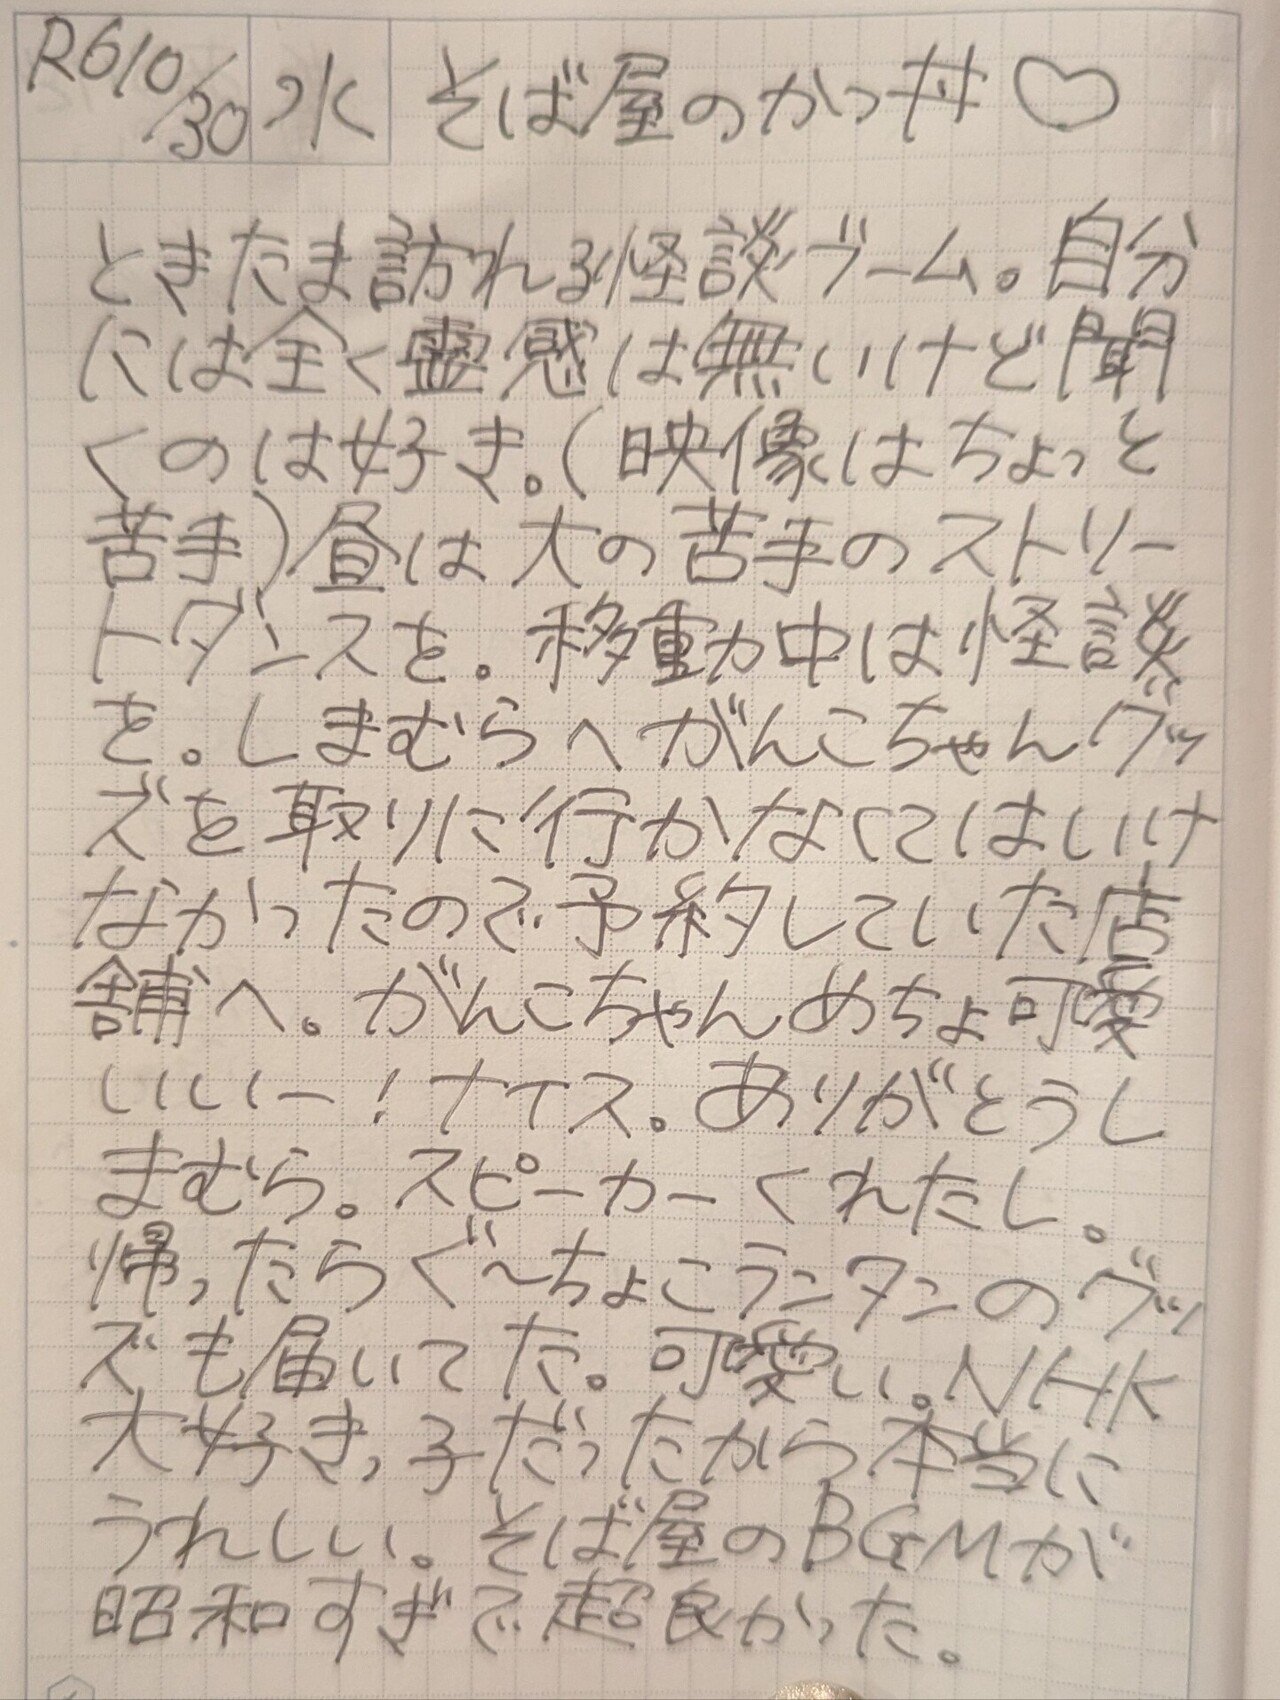 R6 10/30 水 そば屋のかつ丼♡
ときたま訪れる怪談ブーム。自分
には全く霊感は無いけど聞
くのは好き。(映像はちょっと
苦手)昼は大の苦手のストリー
トダンスを。移動中は怪談
を。しまむらへがんこちゃんグッ
ズを取りに行かなくてはいけ
なかったので予約していた店
舗へ。がんこちゃんめちょ可愛
いいいー!ナイス。ありがとうし
まむら。スピーカーくれたし。
帰ったらぐ〜ちょこランタンのグッ
ズも届いてた。可愛い。NHK
大好きっ子だったから本当に
うれしい。そば屋のBGMが
昭和すぎて超良かった。